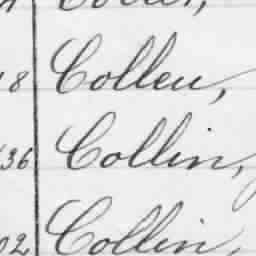 8 Collen,
36 Collin,
02 Collin,